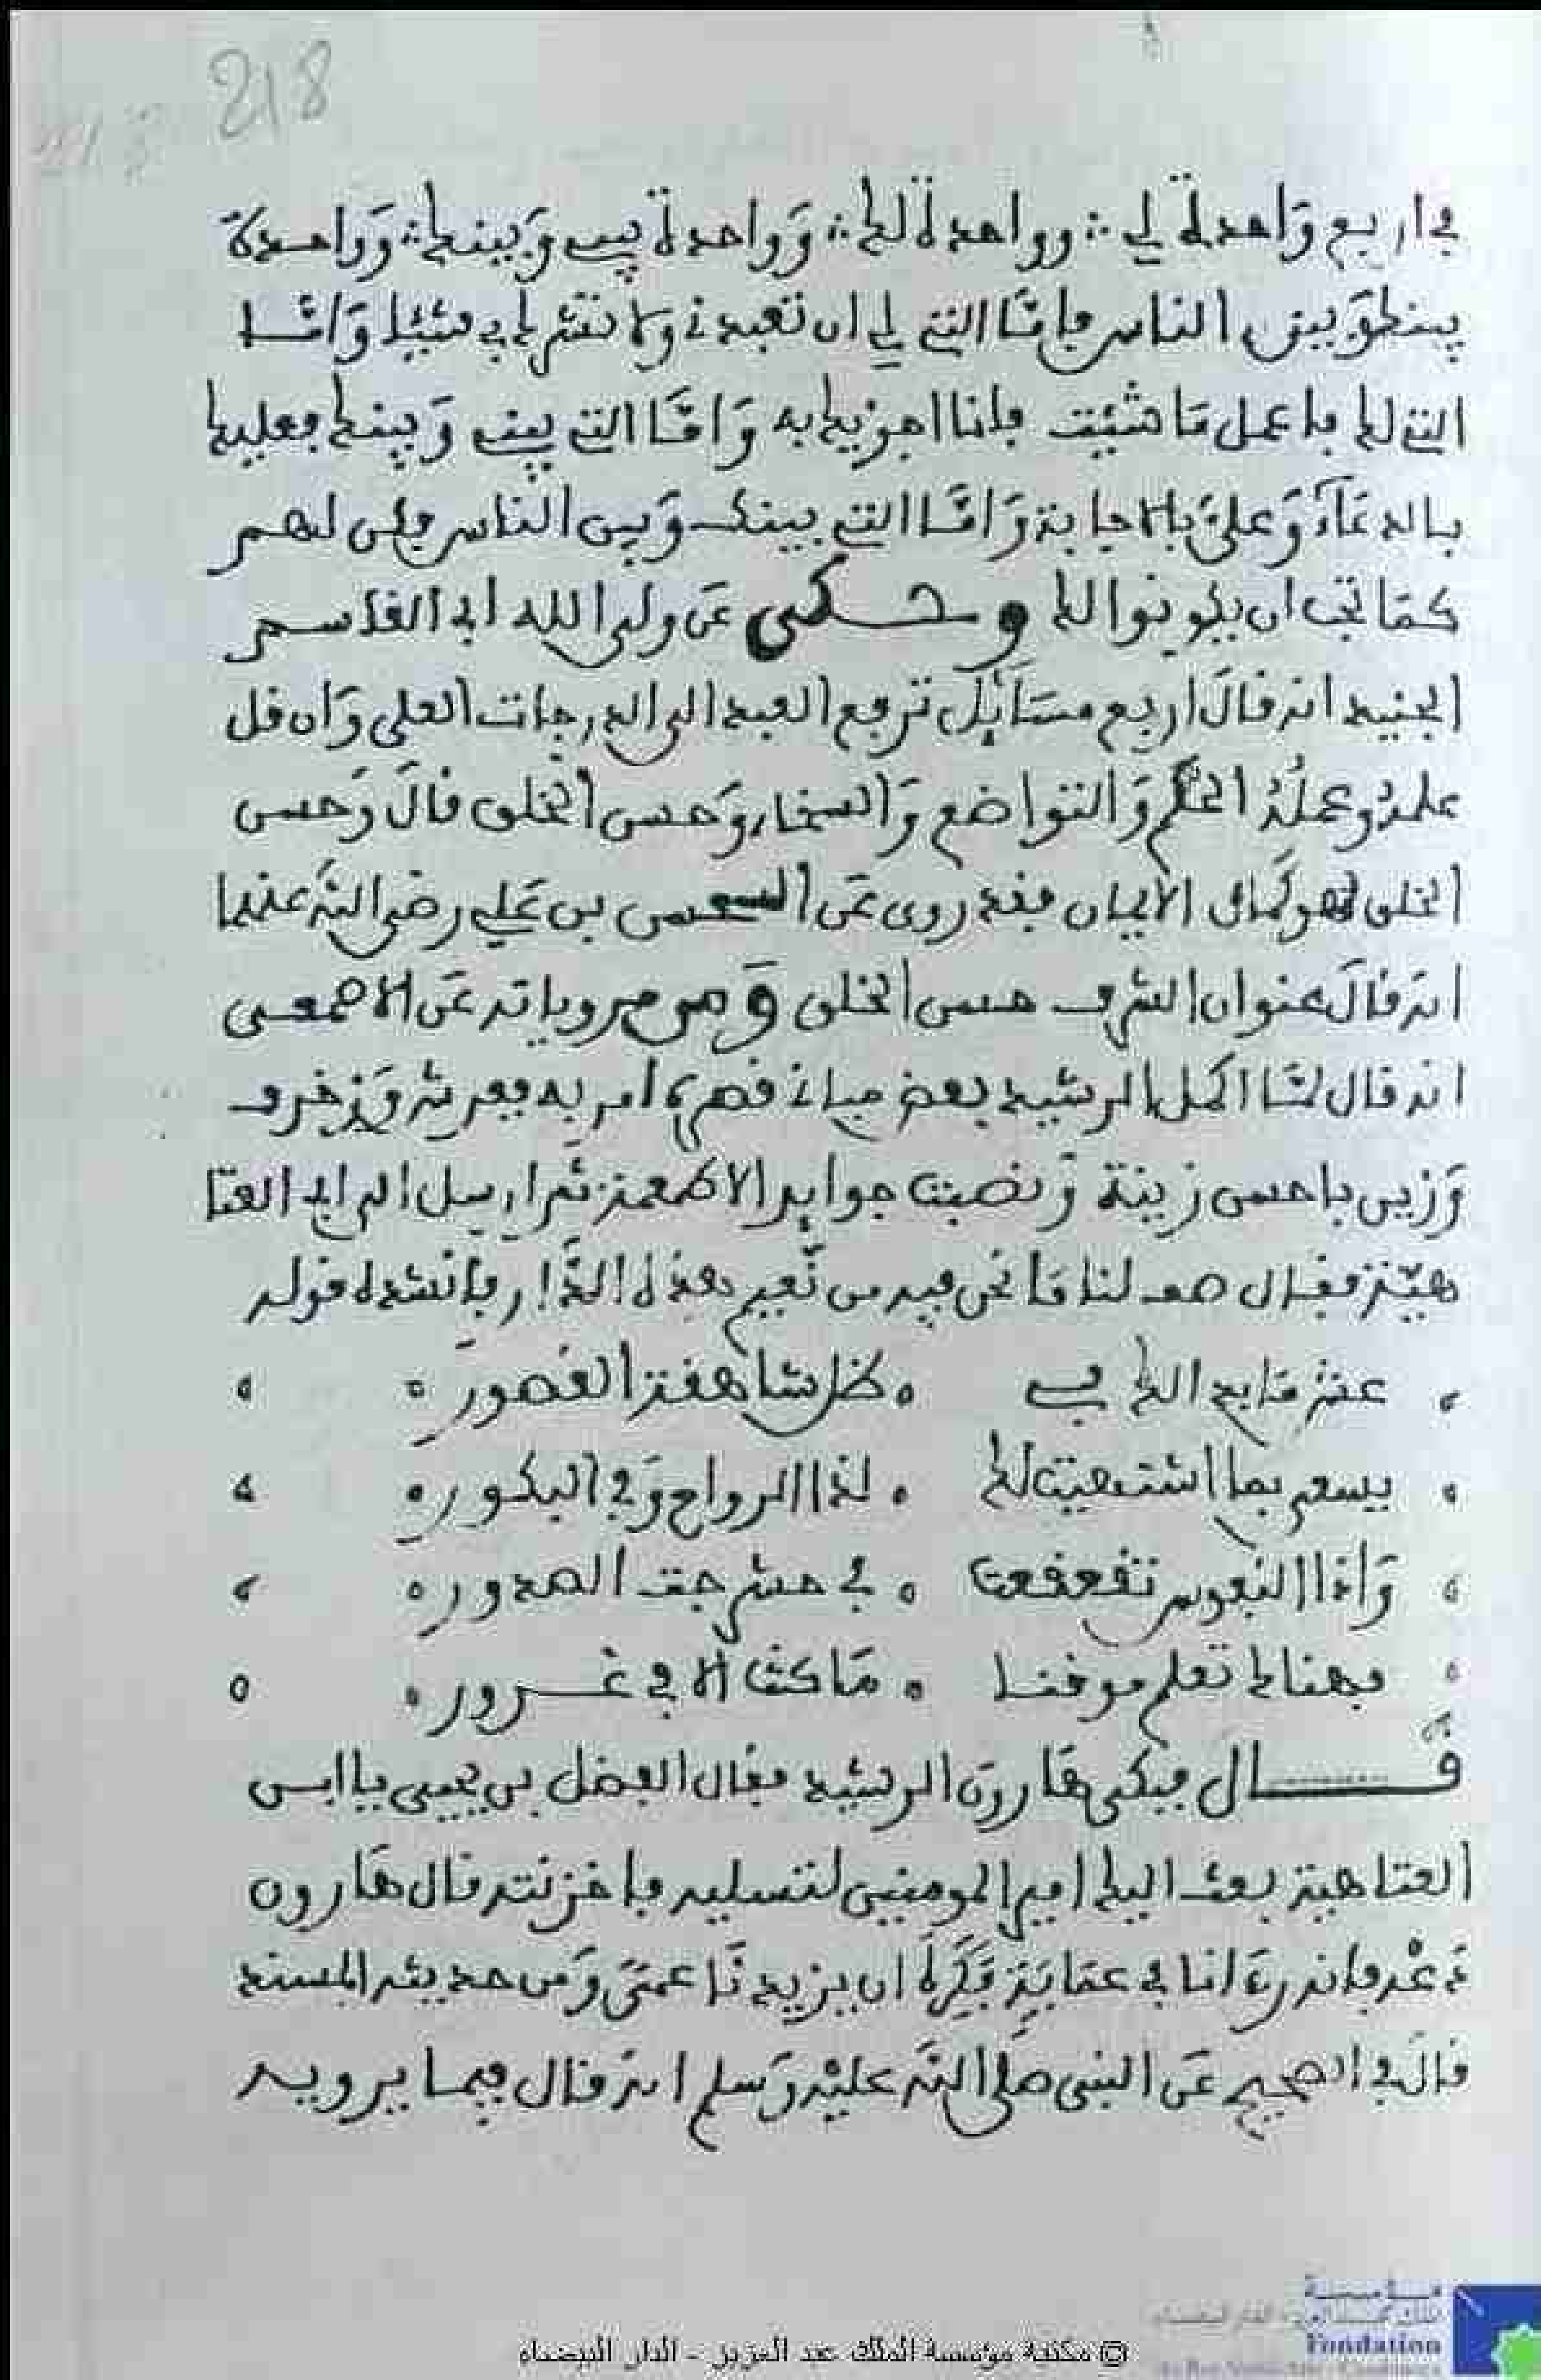 218
في اربع وَاحدة لي ∴ وواحدة لك ∴ وَواحدة بيني وَبينك ∴ وَواحدة
بينك وَبين الناس فامَّا التي لي ان تعبدني ولا تشرك بي شيئا وَامَّا
التي لك فاعمل مَا شئت فانا اجزيك به وَامَّا التي بيني وَبينك فعليك
بالدعَآء وَعليَّ بالاجابة وَامَّا التي بينك وَبين الناس فكن لهم
كمَا تحب ان يكونوا لك وحكى عَن ولي الله ابي القاسم
الجنيد انه قالَ اربع مسَائل ترفع العبد الى الدرجات العلى وَان قل
علمهُ وعملهُ الحلم وَالتواضع وَالسخاء وَحسن الخلق قالَ وَحسن
الخلق هو كمال الايمان فقد روى عَن الحسن بن عَلي رضي اللهَ عنهما
انه قالَ عنوان الشرف حسن الخلق وَمن مروياته عَن الاصمعي
انه قال لمَّا اكمل الرشيد بعض مباني قصره امر به ففرش وَزخرف
وَزين باحسن زينة وَنصبت جوابي الاطعمة ثم ارسل الى ابي العتا
هيّة فقال صف لنا مَا نحن فيه من نَعيم هذه الدَّار فانشده قوله
عش مَا بدا لك في ه ظل شاهقة القصور ه
يسعى بما اشتهيت لك ه لذا الرواح وَفي البكور ه
وَاذا النفوس تقعقعت ه في حشرجة الصدور ه
فهناك تعلم موقنا ه مَا كنت الا في غرور ه
قَال فبكى هَارون الرشيد فقال الفضل بن يحيى يا ابن
العتاهية بعث اليك امير المومنين لتسليه فاحزنته قال هَارون
دَعْه فانه رءَانا في عمَايَةٍ فَكَرِهَ ان يزيدنَا عمىَ وَمن حديثه المسند
قالَ في الصحيح عَن النبي صلى اللهَ عليْه وَسلم انه قال فيما يرويه
© مكتبة مؤسسة الملك عبد العزيز - الدار البيضاء
Fondation